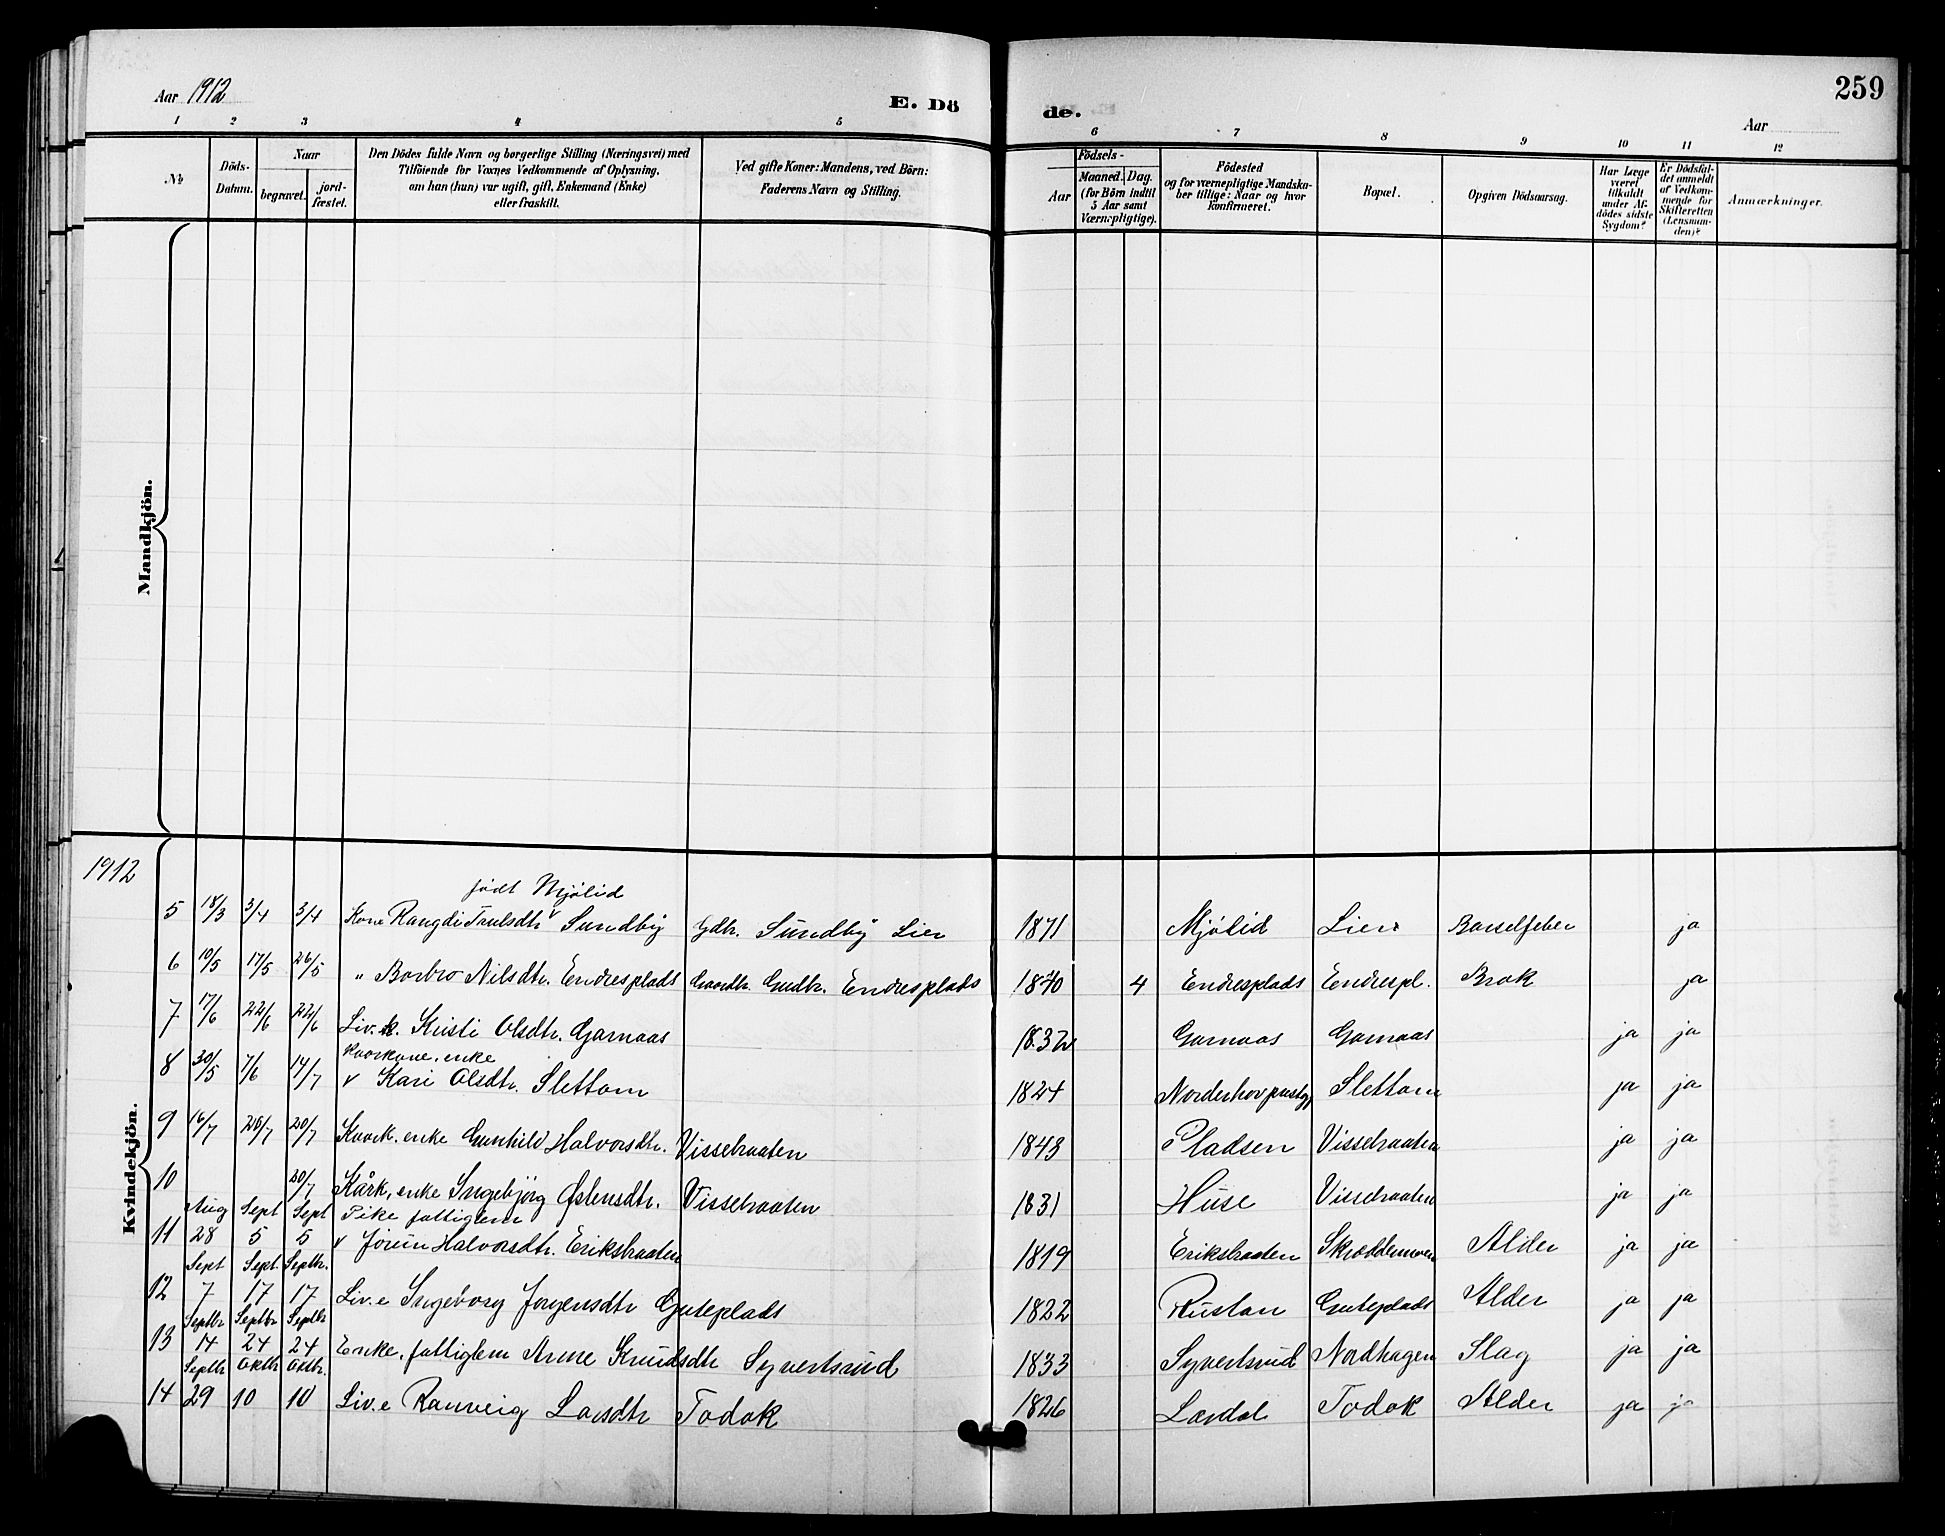 Aar 1912
E. Dö
de.
Aar
259
1 2 3 4 5 6 7 8 9 10 11 12
№
Döds-Datum.
Naar
begravet.
jord-fæstet.
Den Dödes fulde Navn og borgerlige Stilling (Næringsvei) med
Tilföiende for Voxnes Vedkommende af Oplysning,
om han (hun) var ugift, gift, Enkemand (Enke)
eller fraskilt.
Ved gifte Koner: Mandens, ved Börn:
Faderens Navn og Stilling.
Födsels-
Aar
Maaned. Dag.
(for Börn indtil
5 Aar samt
Værnepligtige).
Födested
og for værnepligtige Mandska-
ber tillige: Naar og hvor
konfirmeret.
Bopæl.
Opgiven Dödsaarsag.
Har Læge
været
tilkaldt
under Af-
dödes sidste
Sygdom?
Er Dödsfal-
det anmeldt
af Vedkom-
mende for
Skifteretten
(Lensman-
den)?
Anmærkninger.
Mandkjön.
Kvindekjön.
1912
født Mjølid
5 18/3 3/4 3/4 Kone Rangdi Trulsdtr v Sundby Gdbr. Sundby Lier 1871 Mjølid Lier Barselfeber ja
6 10/5 17/5 26/5 " Barbro Nilsdtr. Endresplads Gaardbr. Gudbr. Endresplads 1870 4 Endresplads Endrespl. Brok ja
7 17/6 22/6 22/6 Liv.k. Kristi Olsdtr. Garnaas 1832 Garnaas Garnaas ja ja
Kaarkone, enke
8 30/5 7/6 14/7 v Kari Olsdtr. Slettom 1824 Norderhov prestgj Slettom ja ja
9 16/7 20/7 20/7 Kaark. enke Gunhild Halvorsdtr. Vissebraaten 1843 Pladsen Vissebraaten ja ja
10 20/7 Kårk, enke Ingebjørg Østensdtr. Vissebraaten 1831 Huse Vissebraaten ja ja
Aug Sept Sept Pike fattiglem
11 28 5 5 v Jørun Halvorsdtr. Eriksbraaten 1819 Eriksbraaten Alder ja ja
Sept Sept. Septbr.
12 7 17 17 Liv.e Ingeborg Jørgensdtr Guteplads 1822 Rustan Guteplads Alder ja ja
Septbr Septbr Septbr
13 14 24 24 Enke, fattiglem Anne Knudsdtr Syvertsrud 1833 Syvertsrud Nordhagen Slag ja ja
Septbr Oktbr Oktbr.
14 29 10 10 Liv.e Ranveig Larsdtr Todok 1826 Lærdal Todok Alder ja ja